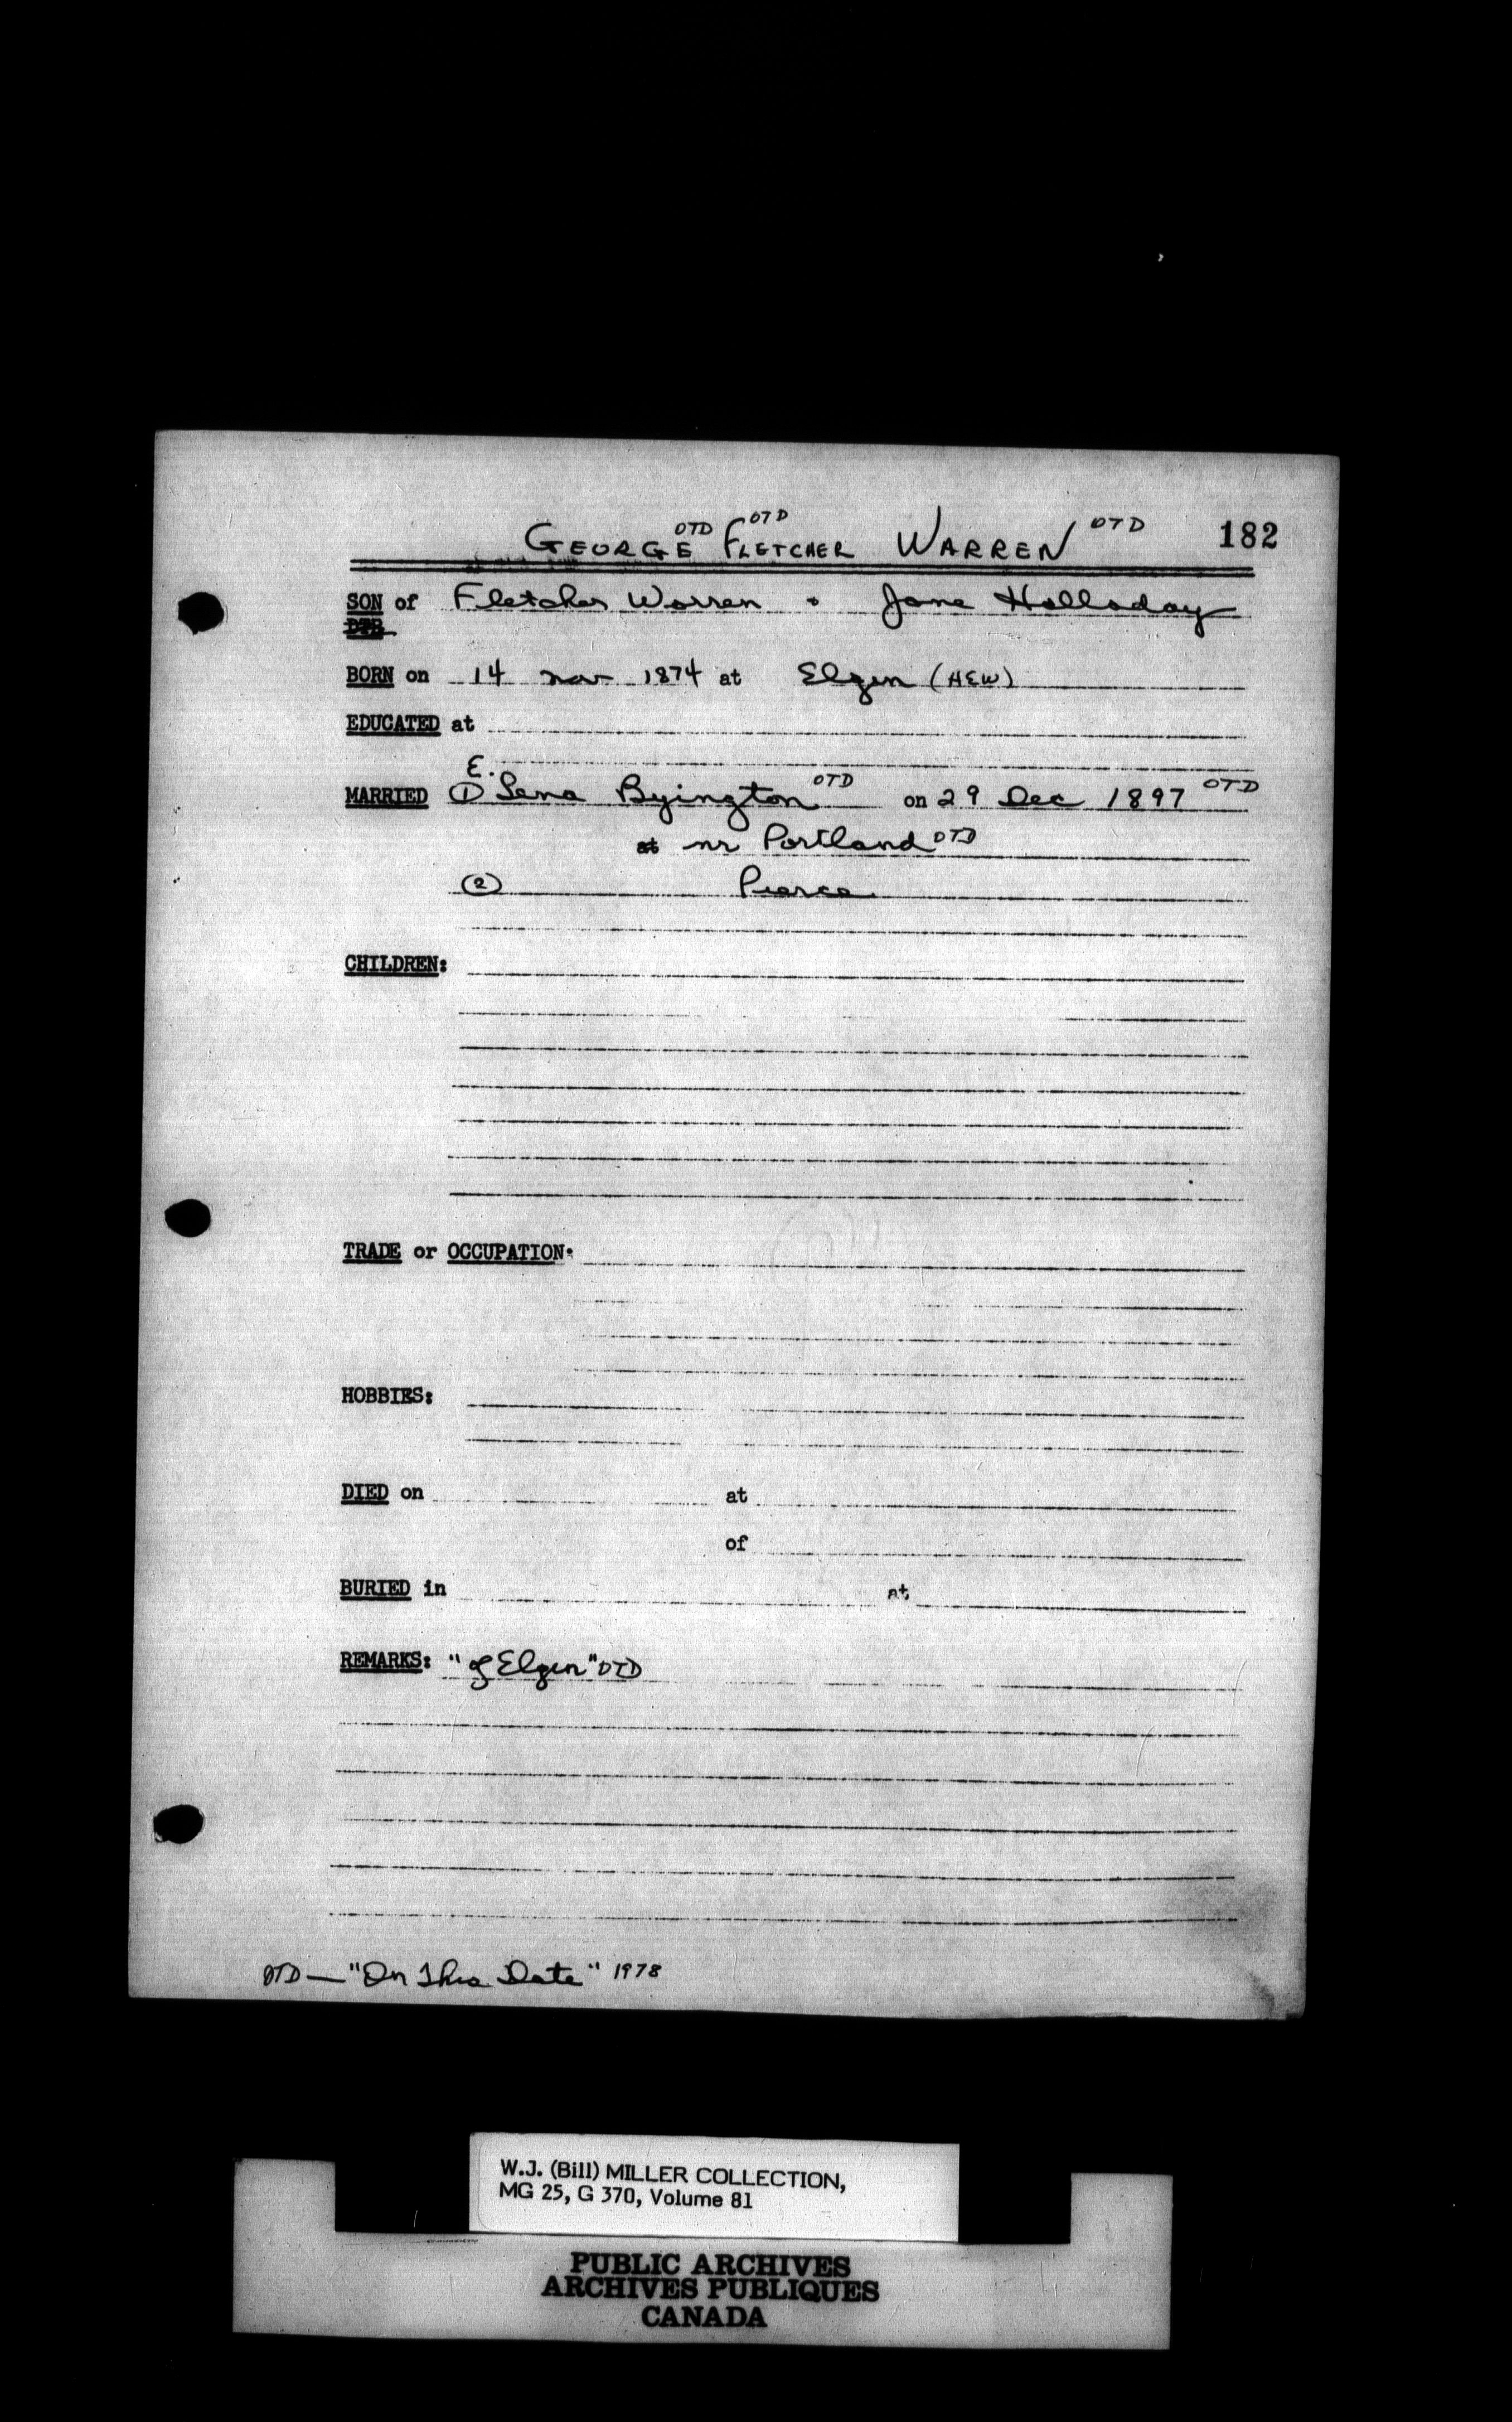 GEORGE OTD FLETCHER OTD WARREN OTD 182
SON of Fletcher Warren + Jane Halladay
DTR
BORN on 14 Nov 1874 at Elgin (HEW)
EDUCATED at
E.
MARRIED ① Lena Byington OTD on 29 Dec 1897 OTD
at nr Portland OTD
② Pearce
CHILDREN:
TRADE or OCCUPATION:
HOBBIES:
DIED on at
of
BURIED in at
REMARKS: "of Elgin" OTD
OTD — "On This Date" 1978
W.J. (Bill) MILLER COLLECTION,
MG 25, G 370, Volume 81
PUBLIC ARCHIVES
ARCHIVES PUBLIQUES
CANADA